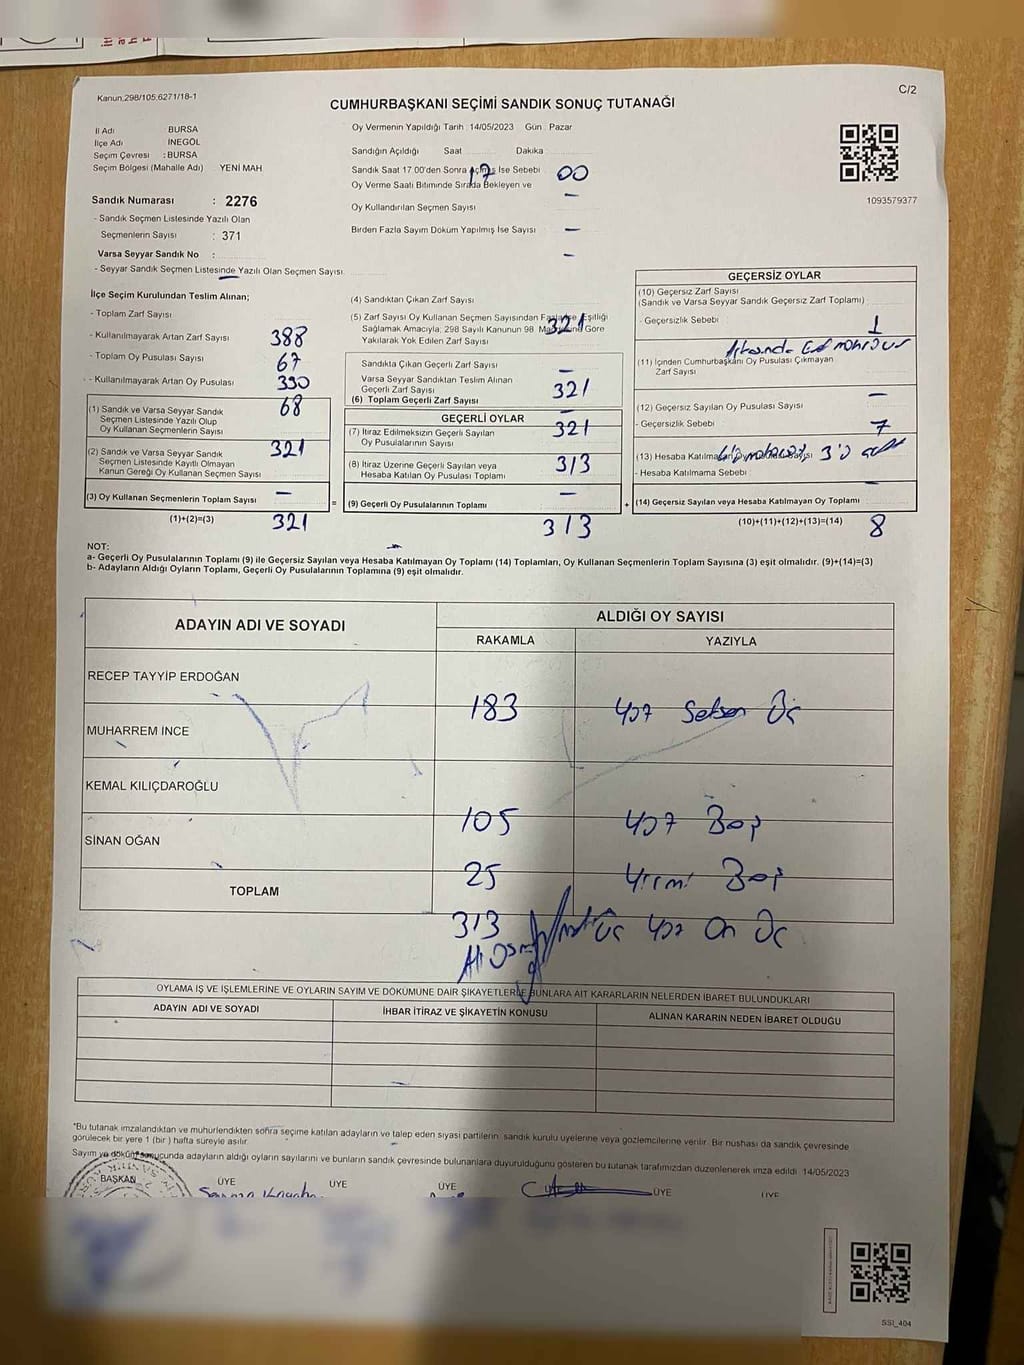 Kanun,298/105,6271/18-1
C/2
CUMHURBAŞKANI SEÇİMİ SANDIK SONUÇ TUTANAĞI
İl Adı BURSA
İlçe Adı İNEGÖL
Seçim Çevresi : BURSA
Seçim Bölgesi (Mahalle Adı) YENİ MAH
Sandık Numarası : 2276
- Sandık Seçmen Listesinde Yazılı Olan
Seçmenlerin Sayısı : 371
Varsa Seyyar Sandık No :
- Seyyar Sandık Seçmen Listesinde Yazılı Olan Seçmen Sayısı
Oy Vermenin Yapıldığı Tarih 14/05/2023 Gün : Pazar
Sandığın Açıldığı Saat Dakika
17 00
Sandık Saat 17.00'den Sonra Açılmış İse Sebebi
–
Oy Verme Saati Bitiminde Sırada Bekleyen ve
Oy Kullandırılan Seçmen Sayısı
–
Birden Fazla Sayım Döküm Yapılmış İse Sayısı
–
1093579377
İlçe Seçim Kurulundan Teslim Alınan;
- Toplam Zarf Sayısı
388
- Kullanılmayarak Artan Zarf Sayısı
67
- Toplam Oy Pusulası Sayısı
390
- Kullanılmayarak Artan Oy Pusulası
68
(1) Sandık ve Varsa Seyyar Sandık
Seçmen Listesinde Yazılı Olup
Oy Kullanan Seçmenlerin Sayısı
321
(2) Sandık ve Varsa Seyyar Sandık
Seçmen Listesinde Kayıtlı Olmayan
Kanun Gereği Oy Kullanan Seçmen Sayısı
–
(3) Oy Kullanan Seçmenlerin Toplam Sayısı
(1)+(2)=(3)
321
(4) Sandıktan Çıkan Zarf Sayısı
321
(5) Zarf Sayısı Oy Kullanan Seçmen Sayısından Fazla İse, Eşitliği
Sağlamak Amacıyla; 298 Sayılı Kanunun 98 Maddesine Göre
Yakılarak Yok Edilen Zarf Sayısı
–
Sandıkta Çıkan Geçerli Zarf Sayısı
321
Varsa Seyyar Sandıktan Teslim Alınan
Geçerli Zarf Sayısı
–
(6) Toplam Geçerli Zarf Sayısı
321
GEÇERLİ OYLAR
(7) İtiraz Edilmeksizin Geçerli Sayılan
Oy Pusulalarının Sayısı
313
(8) İtiraz Üzerine Geçerli Sayılan veya
Hesaba Katılan Oy Pusulası Toplamı
–
= (9) Geçerli Oy Pusulalarının Toplamı +
313
GEÇERSİZ OYLAR
(10) Geçersiz Zarf Sayısı
(Sandık ve Varsa Seyyar Sandık Geçersiz Zarf Toplamı)
1
- Geçersizlik Sebebi
(11) İçinden Cumhurbaşkanı Oy Pusulası Çıkmayan
Zarf Sayısı
–
(12) Geçersiz Sayılan Oy Pusulası Sayısı
7
- Geçersizlik Sebebi
(13) Hesaba Katılmayan Oy Pusulası Sayısı
- Hesaba Katılmama Sebebi
(14) Geçersiz Sayılan veya Hesaba Katılmayan Oy Toplamı
(10)+(11)+(12)+(13)=(14)
8
NOT:
a- Geçerli Oy Pusulalarının Toplamı (9) ile Geçersiz Sayılan veya Hesaba Katılmayan Oy Toplamı (14) Toplamları, Oy Kullanan Seçmenlerin Toplam Sayısına (3) eşit olmalıdır. (9)+(14)=(3)
b- Adayların Aldığı Oyların Toplamı, Geçerli Oy Pusulalarının Toplamına (9) eşit olmalıdır.
ADAYIN ADI VE SOYADI
ALDIĞI OY SAYISI
RAKAMLA YAZIYLA
RECEP TAYYİP ERDOĞAN
183 yüz Seksen Üç
MUHARREM İNCE
KEMAL KILIÇDAROĞLU
105 yüz Beş
SİNAN OĞAN
25 Yirmi Beş
TOPLAM
313 Üç yüz On Üç
OYLAMA İŞ VE İŞLEMLERİNE VE OYLARIN SAYIM VE DÖKÜMÜNE DAİR ŞİKAYETLERLE BUNLARA AİT KARARLARIN NELERDEN İBARET BULUNDUKLARI
ADAYIN ADI VE SOYADI İHBAR İTİRAZ VE ŞİKAYETİN KONUSU ALINAN KARARIN NEDEN İBARET OLDUĞU
*Bu tutanak imzalandıktan ve mühürlendikten sonra seçime katılan adayların ve talep eden siyasi partilerin sandık kurulu üyelerine veya gözlemcilerine verilir. Bir nüshası da sandık çevresinde
görülecek bir yere 1 (bir) hafta süreyle asılır.
Sayım ve döküm sonucunda adayların aldığı oyların sayılarını ve bunların sandık çevresinde bulunanlara duyurulduğunu gösteren bu tutanak tarafımızdan düzenlenerek imza edildi 14/05/2023
BAŞKAN ÜYE ÜYE ÜYE ÜYE ÜYE
SSI_404